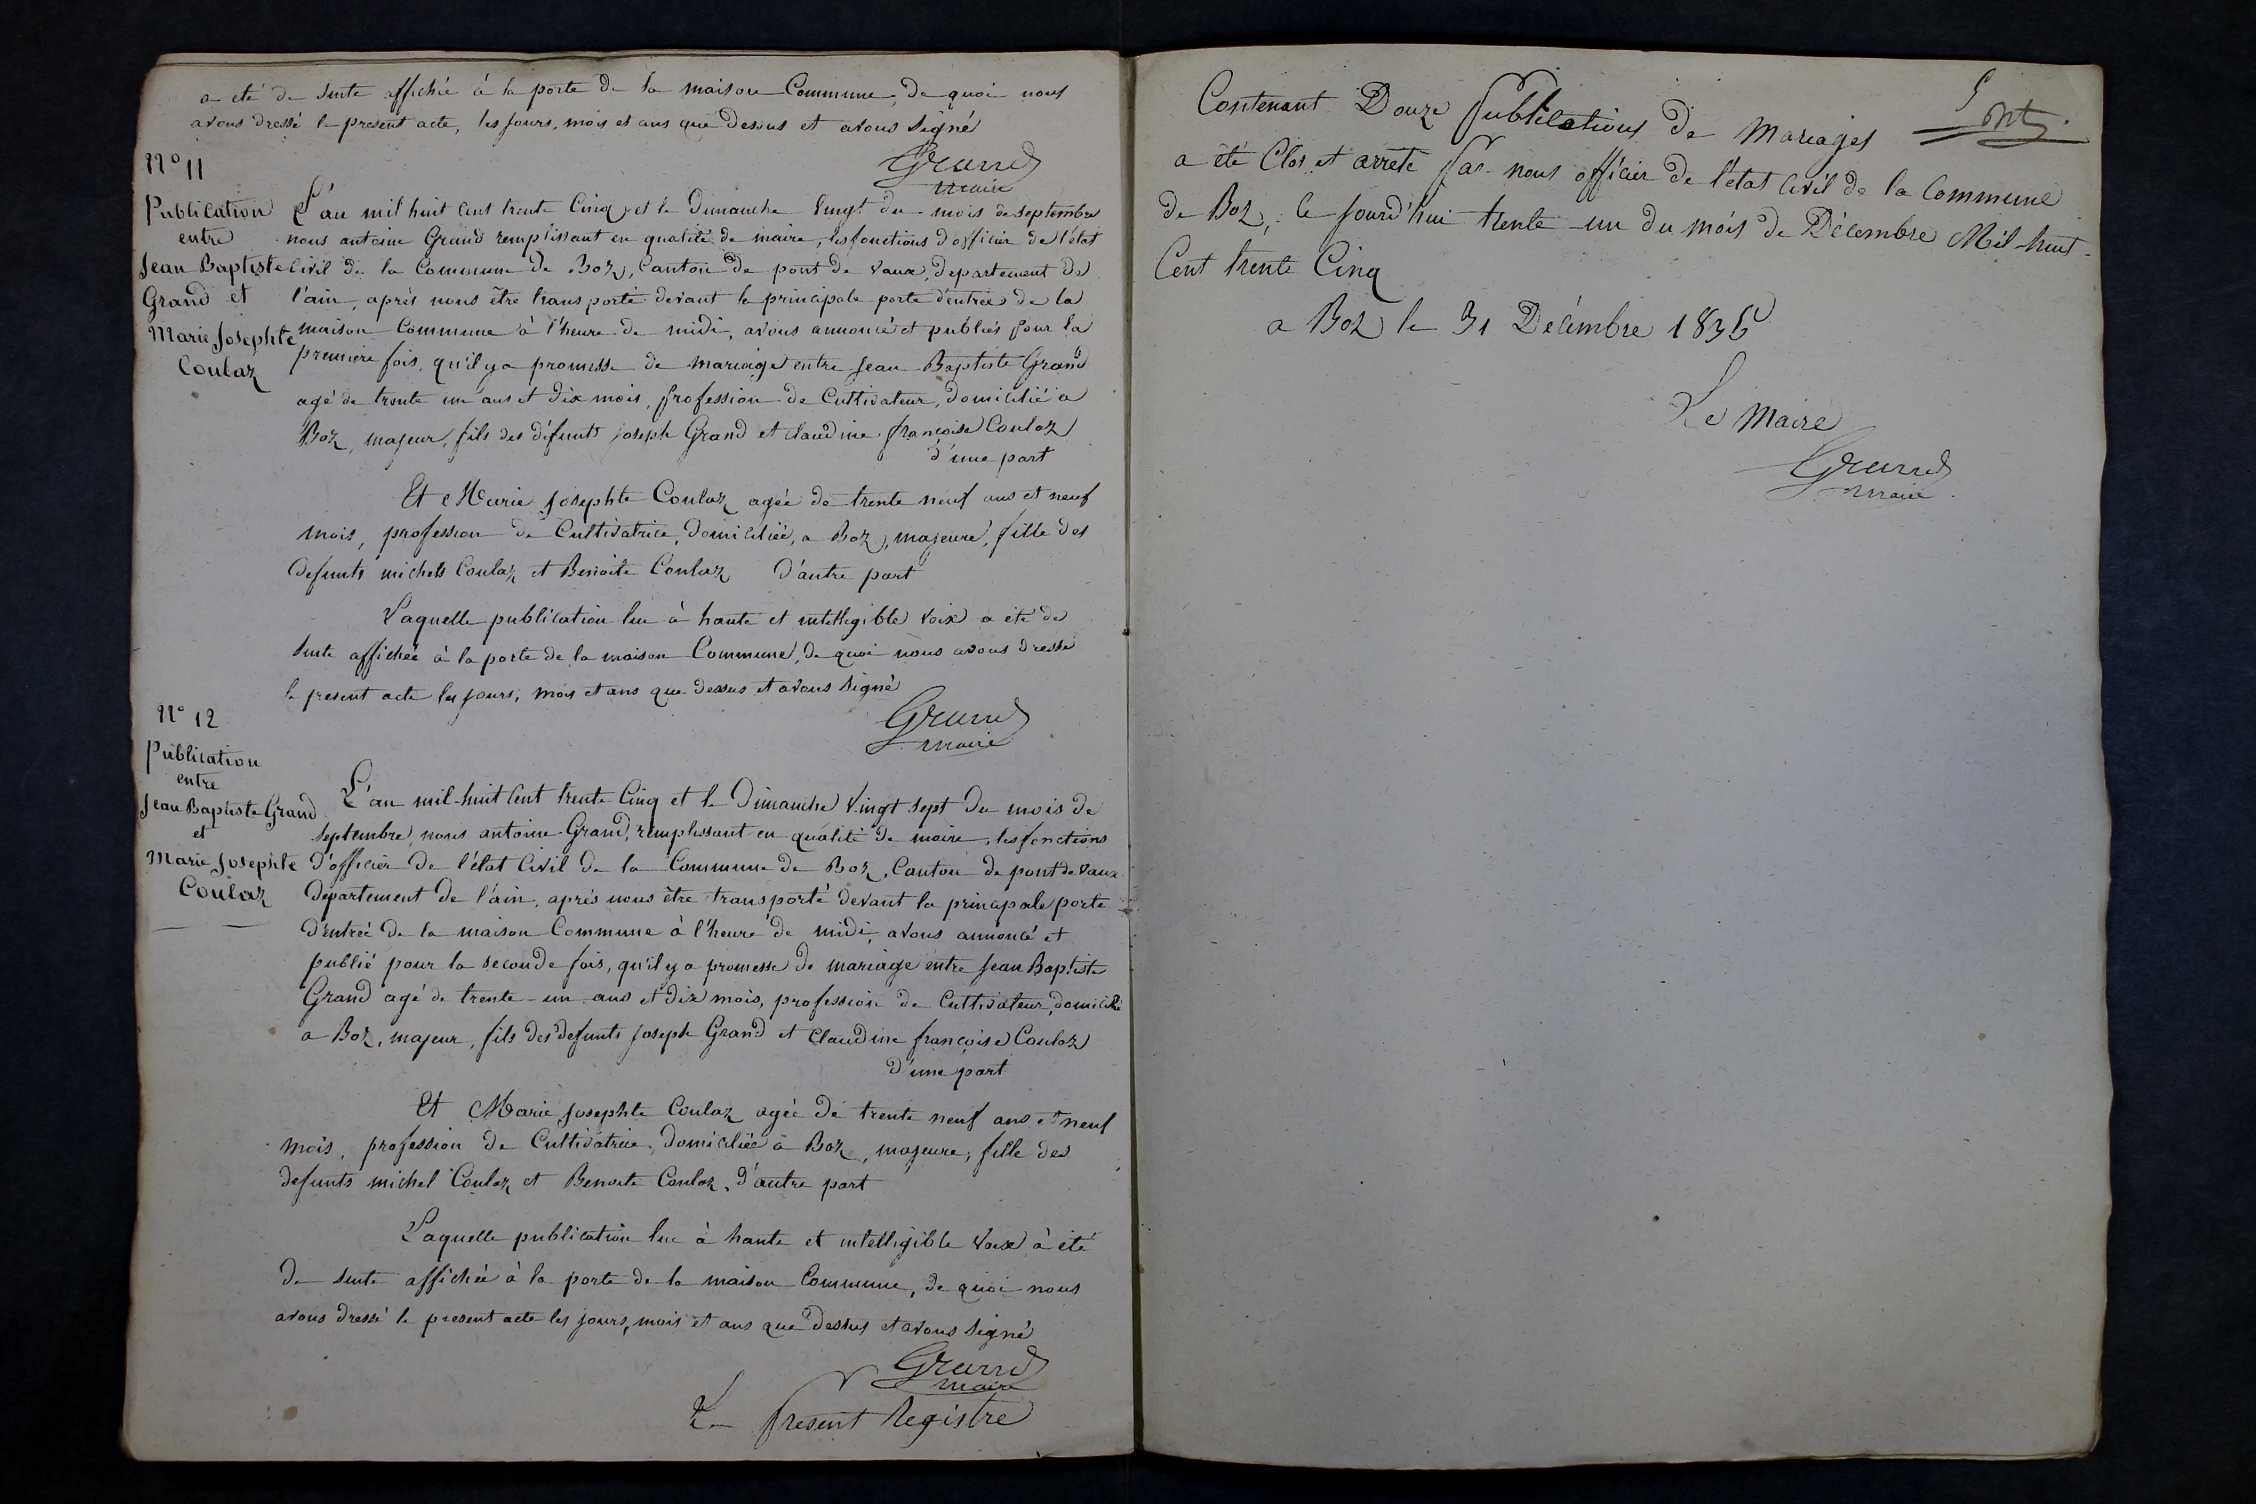 a eté de suite affichée à la porte de la maison Commune, de quoi nous
avons dressé le present acte, les jours, mois et ans que dessus et avons signé
Grand
maire
N° 11
Publication
entre
Jean Baptiste
Grand et
Marie Josephte
Coulaz
L'an mil huit Cent trente Cinq et le Dimanche Vingt du mois de septembre
nous antoine Grand remplissant en qualité de maire, les fonctions d'officier de l'état
Civil de la Commune de Boz, Canton de pont de vaux, departement de
l'ain, aprés nous être transporté devant la principale porte d'entrée de la
maison Commune à l'heure de midi, avons annoncé et publiés pour la
premiére fois, qu'il y a promesse de mariage entre Jean Baptiste Grand
agé de trente un ans et Dix mois, profession de Cultivateur, domicilié a
Boz, majeur, fils des défunts Joseph Grand et claudine françoise Couloz
d'une part
Et Marie Josephte Coulaz agée de trente neuf ans et neuf
mois, profession de Cultivatrice, Domiciliée, a Boz, majeure, fille des
Defunts michels Coulaz et Benoite Coulaz D'autre part
Laquelle publication lue à haute et intelligible voix a été de
suite affichée à la porte de la maison Commune, de quoi nous avons dressé
le present acte les jours, mois et ans que dessus et avons signé
Grand
maire
N° 12
Publication
entre
Jean Baptiste Grand
et
Marie Josephte
Coulaz
L'an mil-huit Cent trente Cinq et le Dimanche Vingt sept du mois de
septembre, nous antoine Grand, remplissant en qualité de maire, les fonctions
d'officier de l'état Civil de la Commune de Boz, Canton de pont de Vaux
Departement de l'ain, aprés nous être transporté devant la principale porte
d'entrée de la maison Commune à l'heure de midi, avons annoncé et
publié pour la seconde fois, qu'il y a promesse de mariage entre Jean Baptiste
Grand agé de trente-un ans et Dix mois, profession de Cultivateur, domicilié
a Boz, majeur, fils des defunts Joseph Grand et Claudine françoise Couloz
d'une part
Et Marie Josephte Coulaz agée de trente neuf ans et neuf
mois, profession de Cultivatrice, domiciliée à Boz, majeure, fille des
defunts michel Coulaz et Benoite Coulaz, D'autre part
Laquelle publication lue à haute et intelligible Voix à été
De suite affichée à la porte de la maison Commune, de quoi nous
avons dressé le present acte les jours, mois et ans que dessus et avons signé
Grand
maire
Le present Registre
Contenant Douze Publications de Mariages
a été Clos et arrêté par nous officier de l'état Civil de la Commune
de Boz, ce jourd'hui trente-un du mois de Décembre Mil-huit-
Cent trente Cinq
a Boz le 31 Décembre 1835
Le Maire
Grand
maire